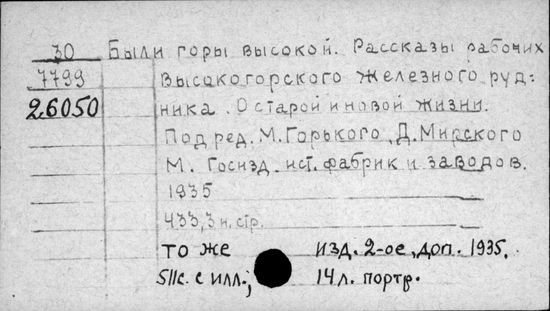 30 Были горы высокой. Рассказы рабочих
7799 Высокогорского железного руд-
26050 ника. О старой и новой жизни.
Под ред. М. Горького, Д. Мирского
М. Госизд. ист. фабрик и заводов.
1935
433,3 н. стр.
то же изд. 2-ое, доп. 1935,
511с. с илл.; 14 л. портр.